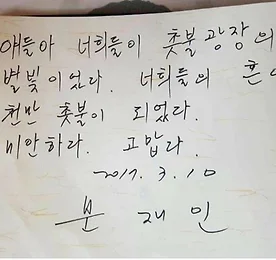 얘들아 너희들이 촛불광장의
별빛이었다. 너희들의 혼이
천만 촛불이 되었다.
미안하다. 고맙다.
2017. 3. 10
문 재 인